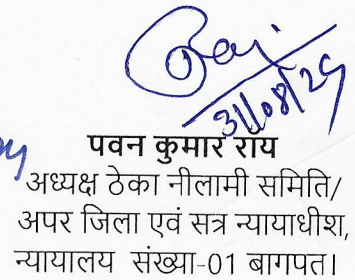 31/08/29
पवन कुमार राय
अध्यक्ष ठेका नीलामी समिति/
अपर जिला एवं सत्र न्यायाधीश,
न्यायालय संख्या-01 बागपत।